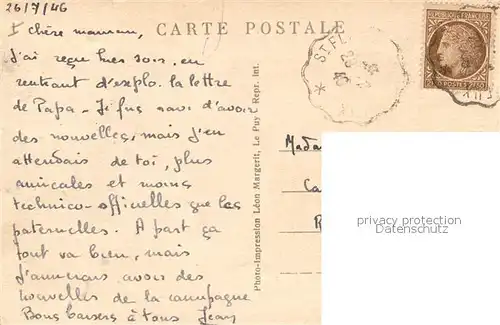 26/7/46
CARTE POSTALE
Chère maman,
J'ai reçu hier soir, en
rentrant d'explo. la lettre
de Papa - Je fus ravi d'avoir
des nouvelles, mais j'en
attendais de toi, plus
amicales et moins
technico-officielles que les
paternelles. A part ça
tout va bien, mais
j'aimerais avoir des
nouvelles de la campagne
Bons baisers à tous Jean
Photo-Impression Léon Margerit, Le Puy - Repr. Int.
ST FL
Mada
Ca
privacy protection
Datenschutz